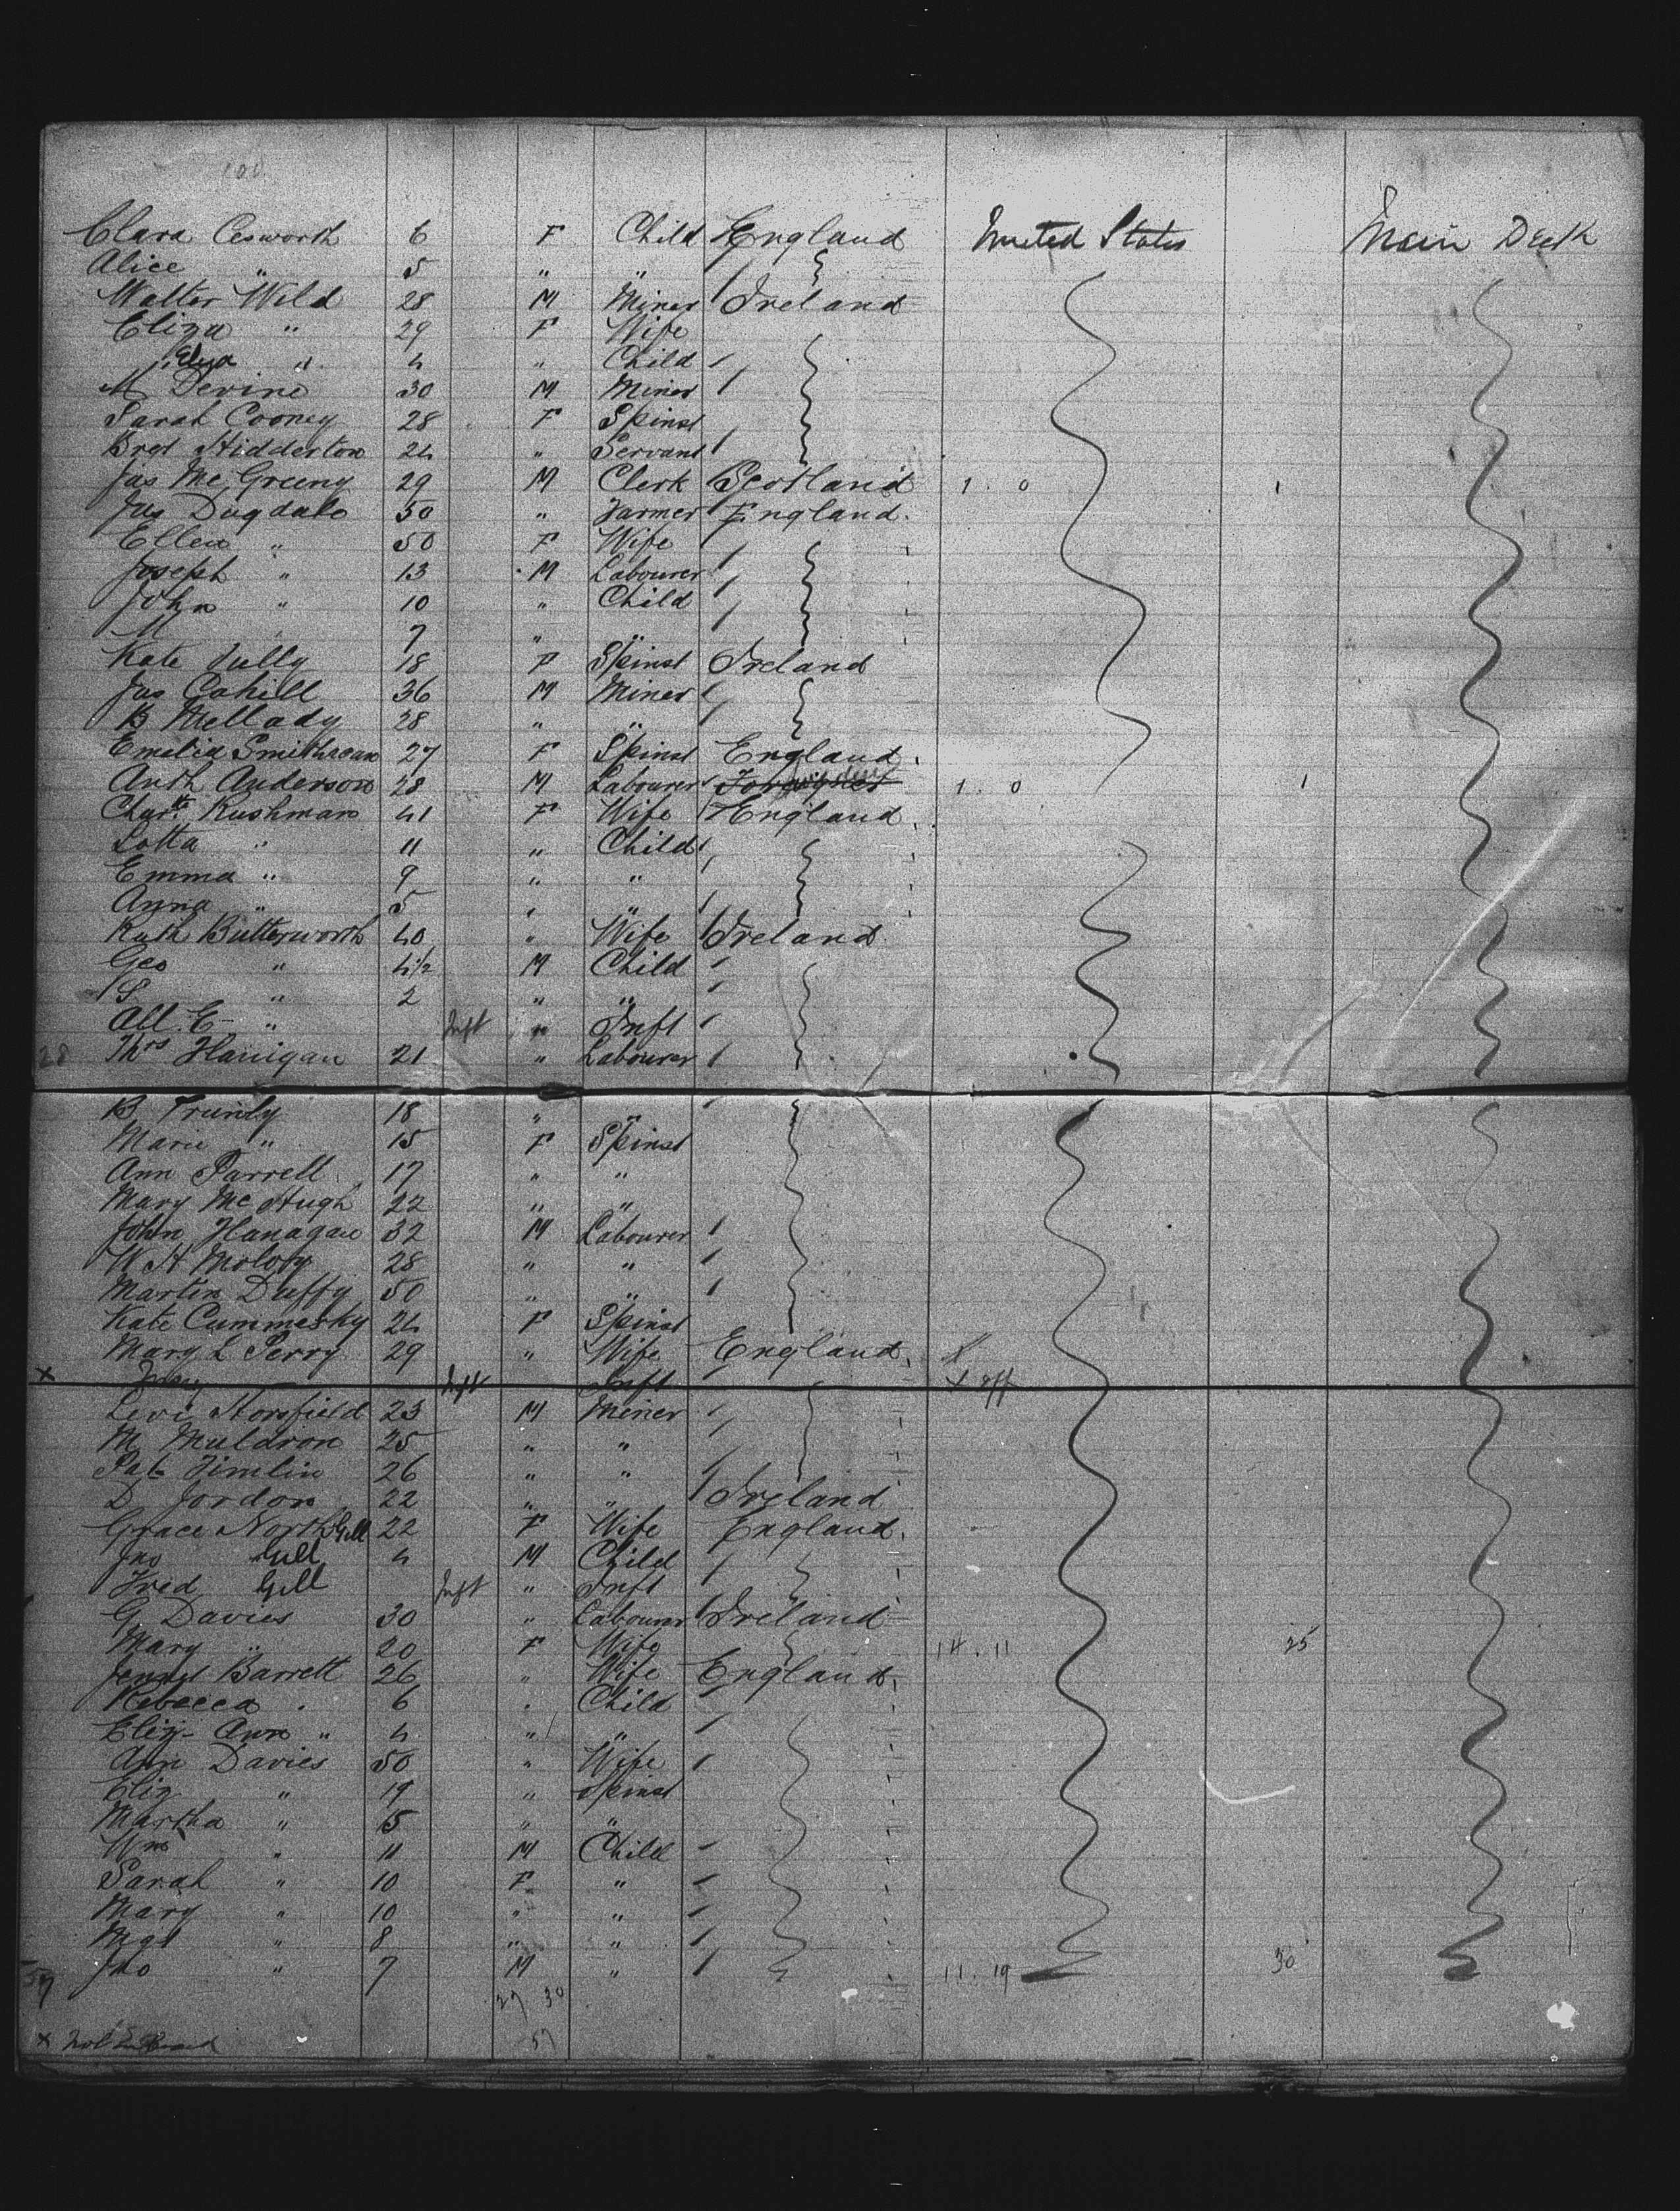 100
Clara Cesworth 6 F Child England United States Main Deck
Alice " 5 " "
Walter Wild 28 M Miner Ireland
Eliza " 29 F Wife
Eliza " 4 " Child
M Devine 30 M Miner
Sarah Cooney 28 F Spinst
Brgt Hidderton 24 " Servant
Jas Mc Greeny 29 M Clerk Scotland 1. 0 1
Jas Dugdale 50 " Farmer England.
Ellen " 50 F Wife
Joseph " 13 M Labourer
John " 10 " Child
M 7 " "
Kate Tully 18 F Spinst Ireland
Jas Cahill 36 M Miner
B Mellady 28 " "
Emelia 27 F Spinst England.
Anth Anderson 28 M Labourer Foreigner 1. 0 1
Chartt. Rushman 41 F Wife England.
Lotta " 11 " Child
Emma " 9 " "
Anna " 5 " "
Ruth Butterworth 40 " Wife Ireland.
Geo " 4½ M Child
S " 2 " "
All. E- " Inft " Inft
28 Thos Flanigan 21 " Labourer
B Trundy 18 " "
Marie " 15 F Spinst
Ann Parrell 17 " "
Mary Mc Hugh 22 " "
John Flanagan 32 M Labourer
W H Moloy 28 " "
Martin Duffy 50 " "
Kate Cummesky 24 F Spinst
Mary L Perry 29 " Wife England. X
X Inft Inft
Levi Horsfield 23 M Miner
M Muldron 25 " "
Pat Timlin 26 " "
D Jordon 22 " " Ireland
Grace North Gill 22 F Wife England.
Jno Gill 4 M Child
Fred Gill Inft " Inft
G. Davies 30 " Labourer Ireland
Mary " 20 F Wife 14. 11 25
Barrett 26 " Wife England.
Rebecca " 6 " Child
Eliz- Ann " 4 " "
Ann Davies 50 " Wife
Eliz " 19 " Spinst
Martha " 15 " "
Wm " 11 M Child
Sarah " 10 F "
Mary " 10 " "
Mgt " 8 " "
57 Jno " 7 M " 11. 19 30
27 30
57
X Not on Board